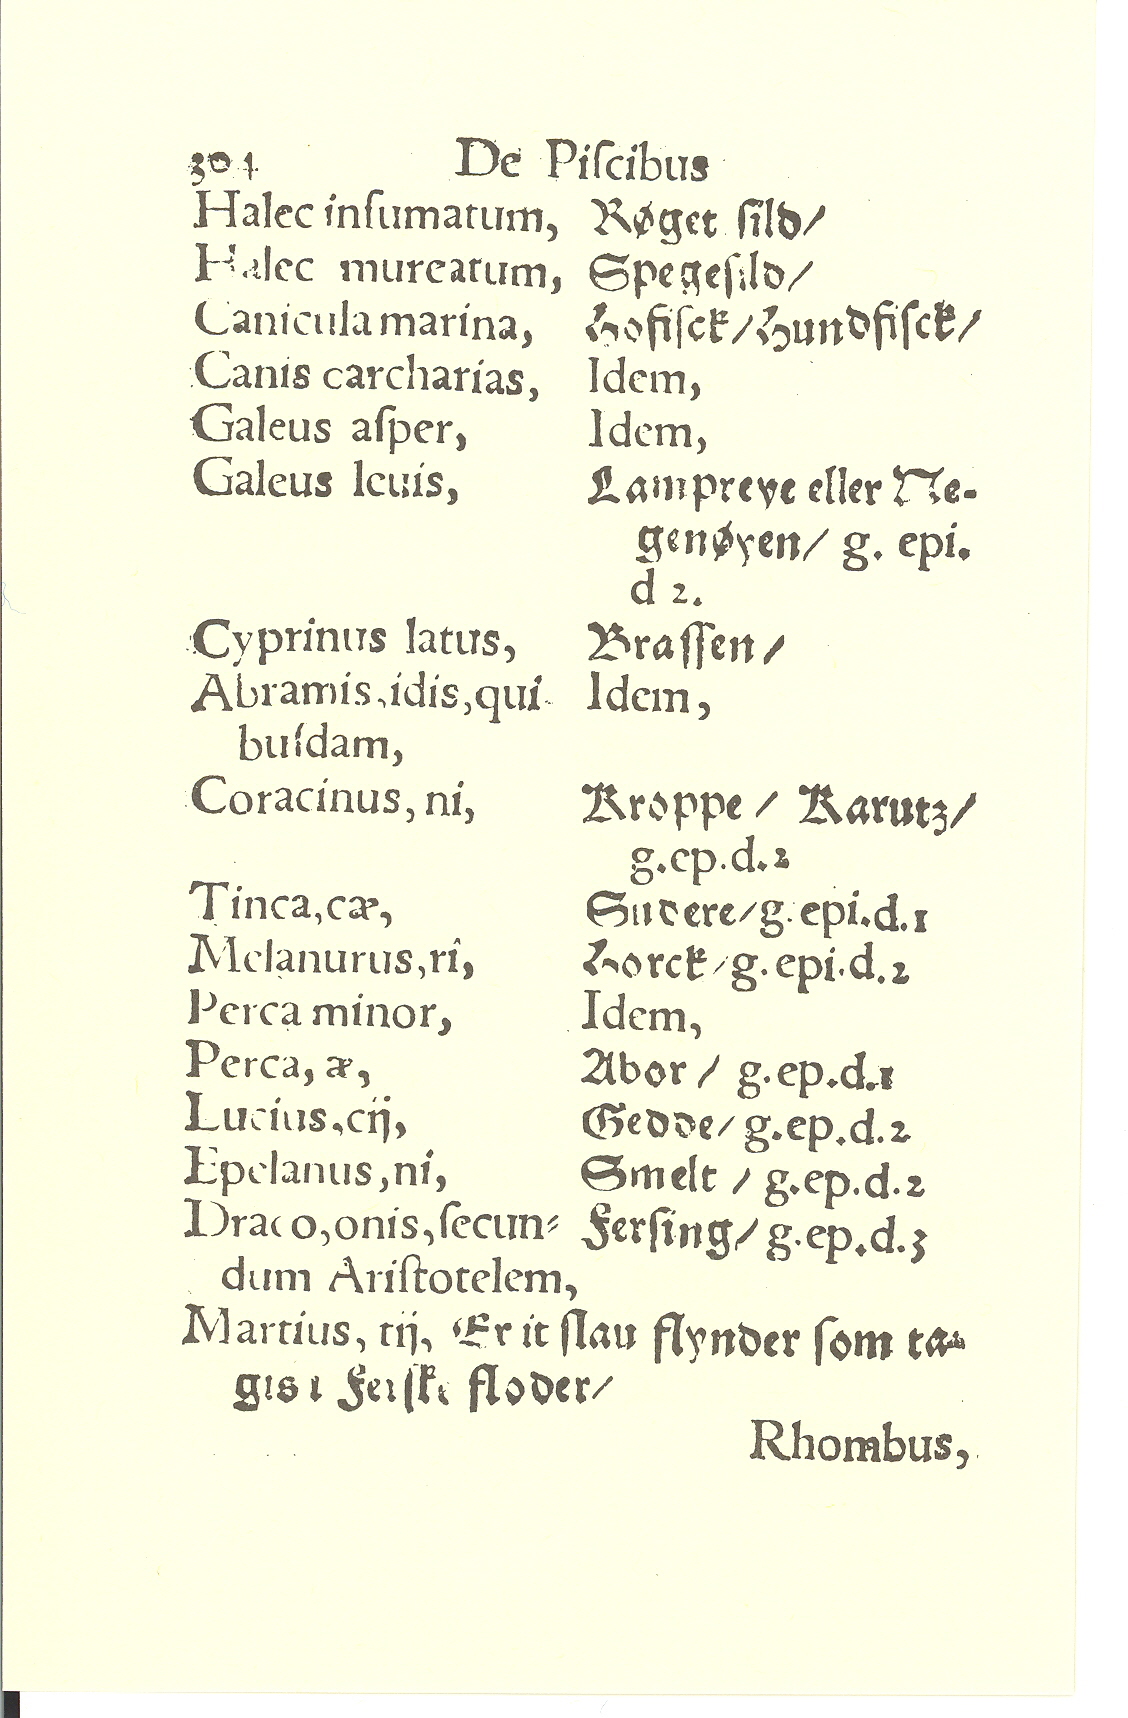 304 De Piſcibus
Halec inſumatum, Røget ſild/
Halec mureatum, Spegeſild/
Canicula marina, Hofiſck/Hundfiſck/
Canis carcharias, Idem,
Galeus aſper, Idem,
Galeus leuis, Lampreye eller Ne-
genøyen/ g. epi.
d 2.
Cyprinus latus, Braſſen/
Abramis, idis, qui- Idem,
buſdam,
Coracinus, ni, Kroppe / Karutz/
g.ep.d.2
Tinca, cæ, Sudere/g.epi.d.1
Melanurus, ri, Horck/g.epi.d.2
Perca minor, Idem,
Perca, æ, Abor / g.ep.d.1
Lucius, cij, Gedde/ g.ep.d.2
Epelanus, ni, Smelt / g.ep.d.2
Draco, onis, ſecun- Ferſing/ g.ep.d.3
dum Ariſtotelem,
Martius, tij, Er it ſlau flynder ſom ta-
gis i Ferſke floder/
Rhombus,